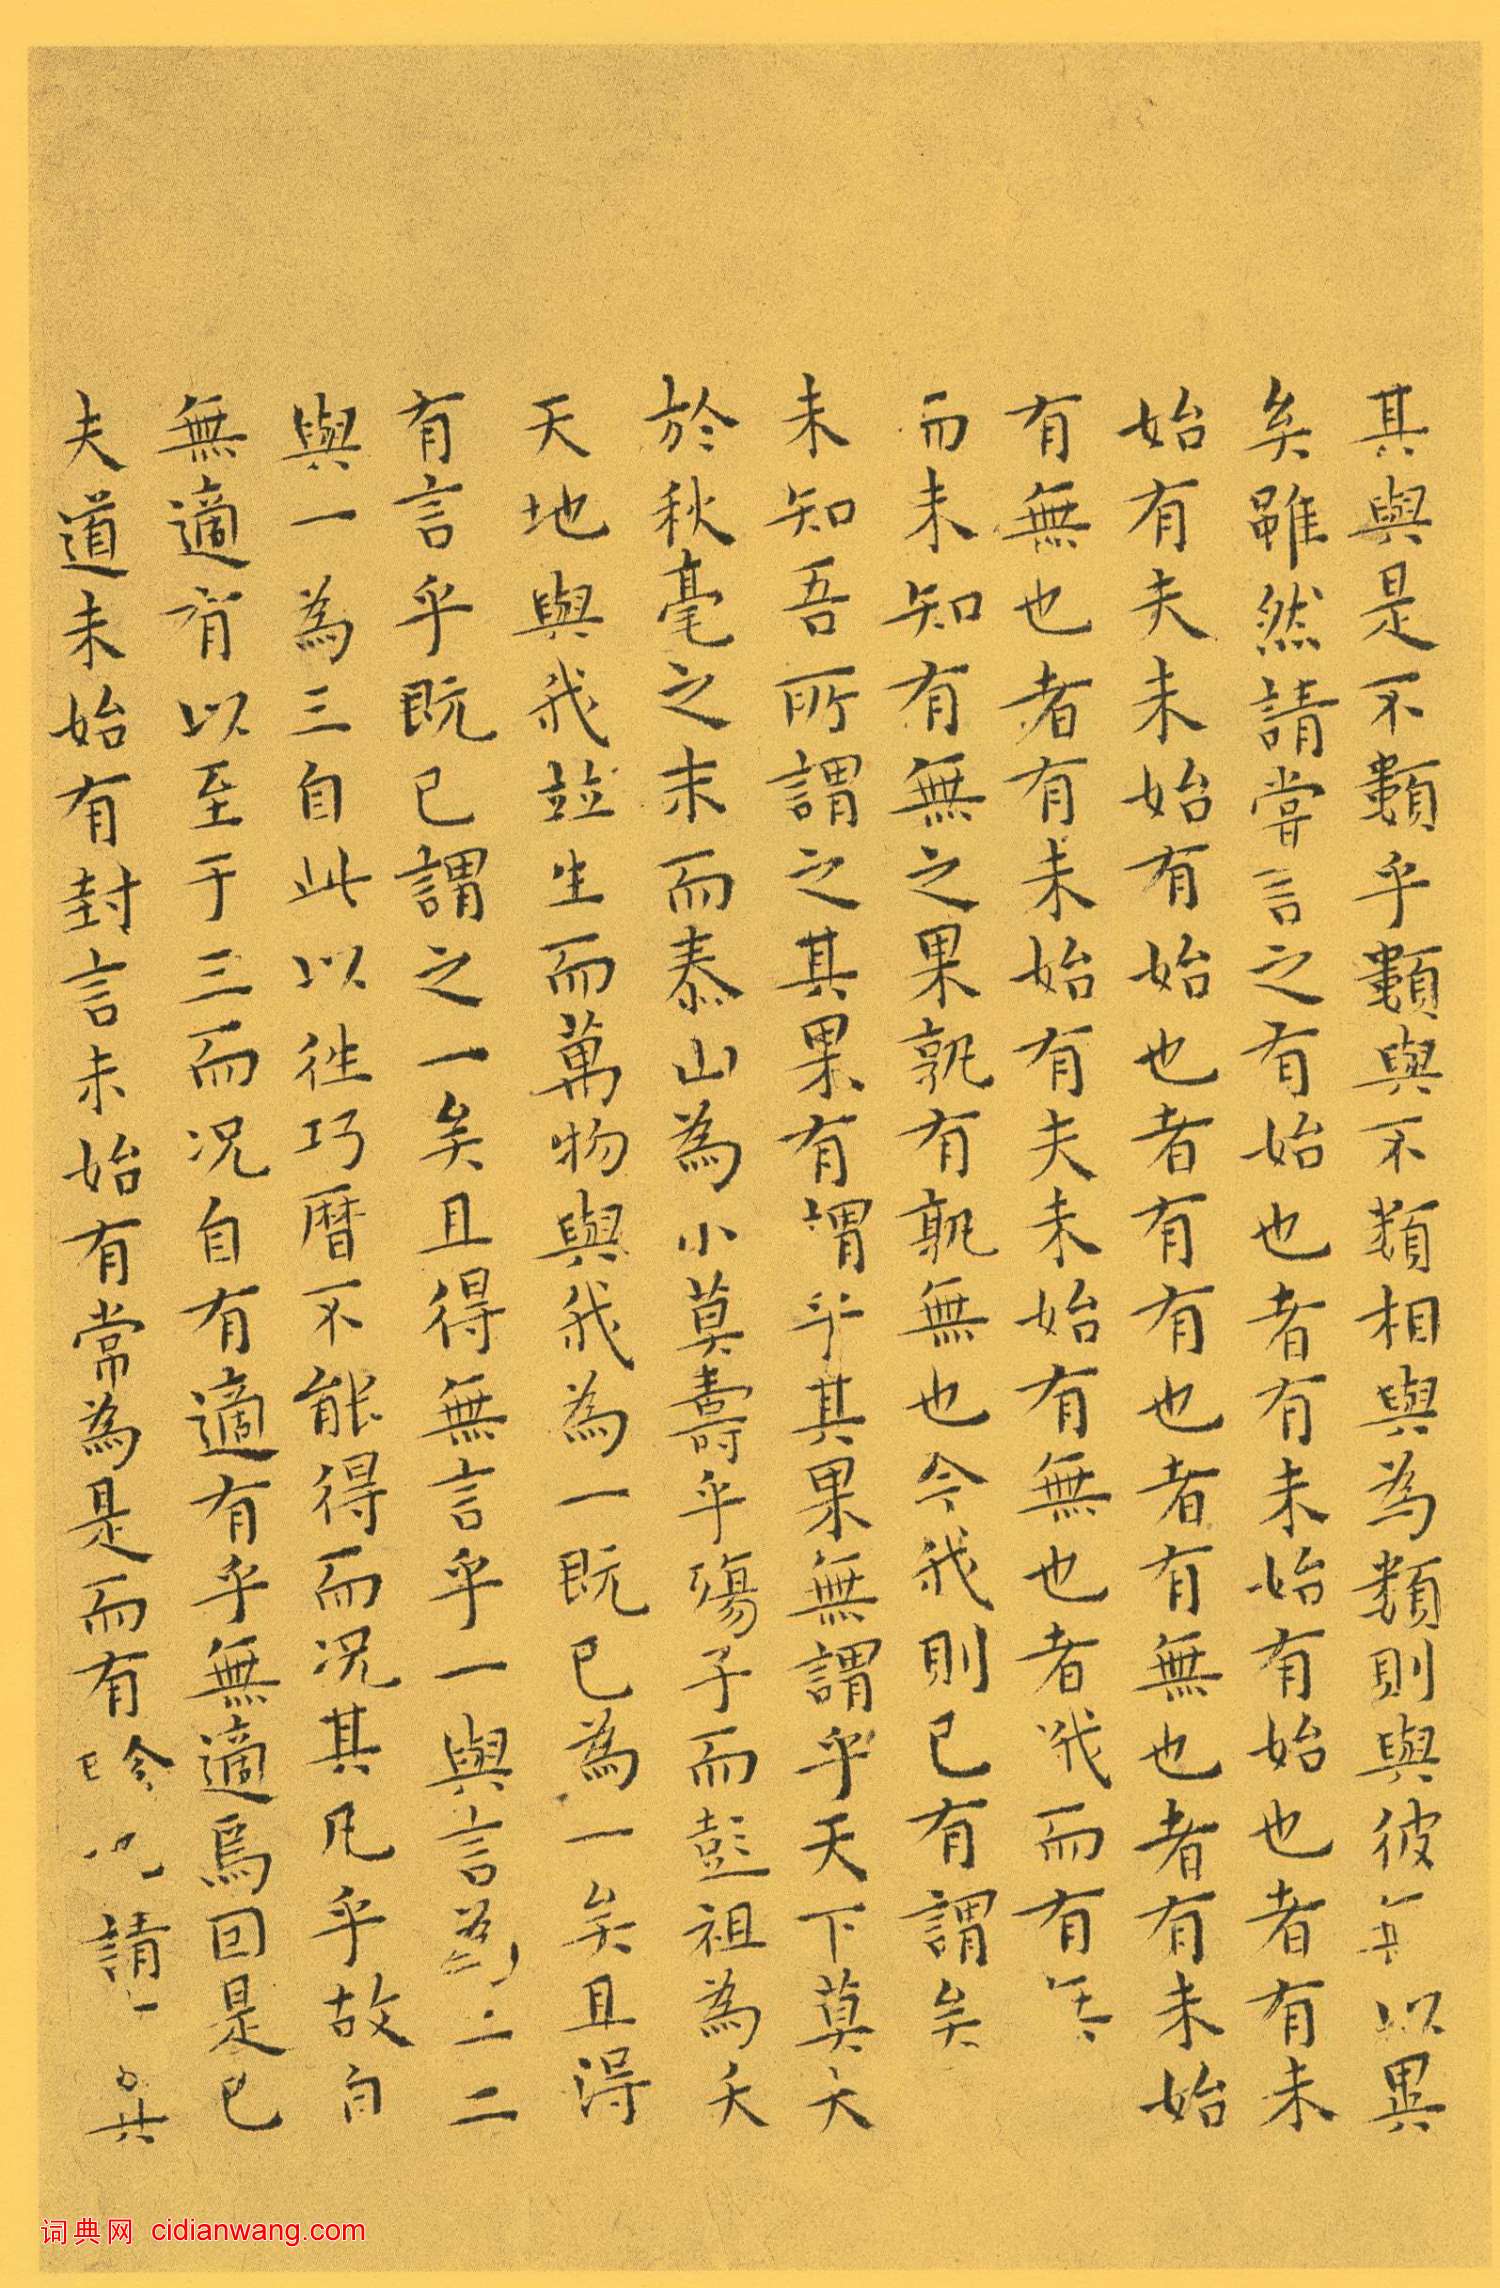 其與是不類乎類與不類相與為類則與彼無以異
矣雖然請嘗言之有始也者有未始有始也者有未
始有夫未始有始也者有有也者有無也者有未始
有無也者有未始有夫未始有無也者我而有無
而未知有無之果孰有孰無也今我則已有謂矣
未知吾所謂之其果有謂乎其果無謂乎天下莫大
於秋毫之末而泰山為小莫壽乎殤子而彭祖為夭
天地與我並生而萬物與我為一既已為一矣且得
有言乎既已謂之一矣且得無言乎一與言為二二
與一為三自此以往巧曆不能得而況其凡乎故自
無適有以至于三而況自有適有乎無適焉因是已
夫道未始有封言未始有常為是而有畛也請言其
词典网 cidianwang.com